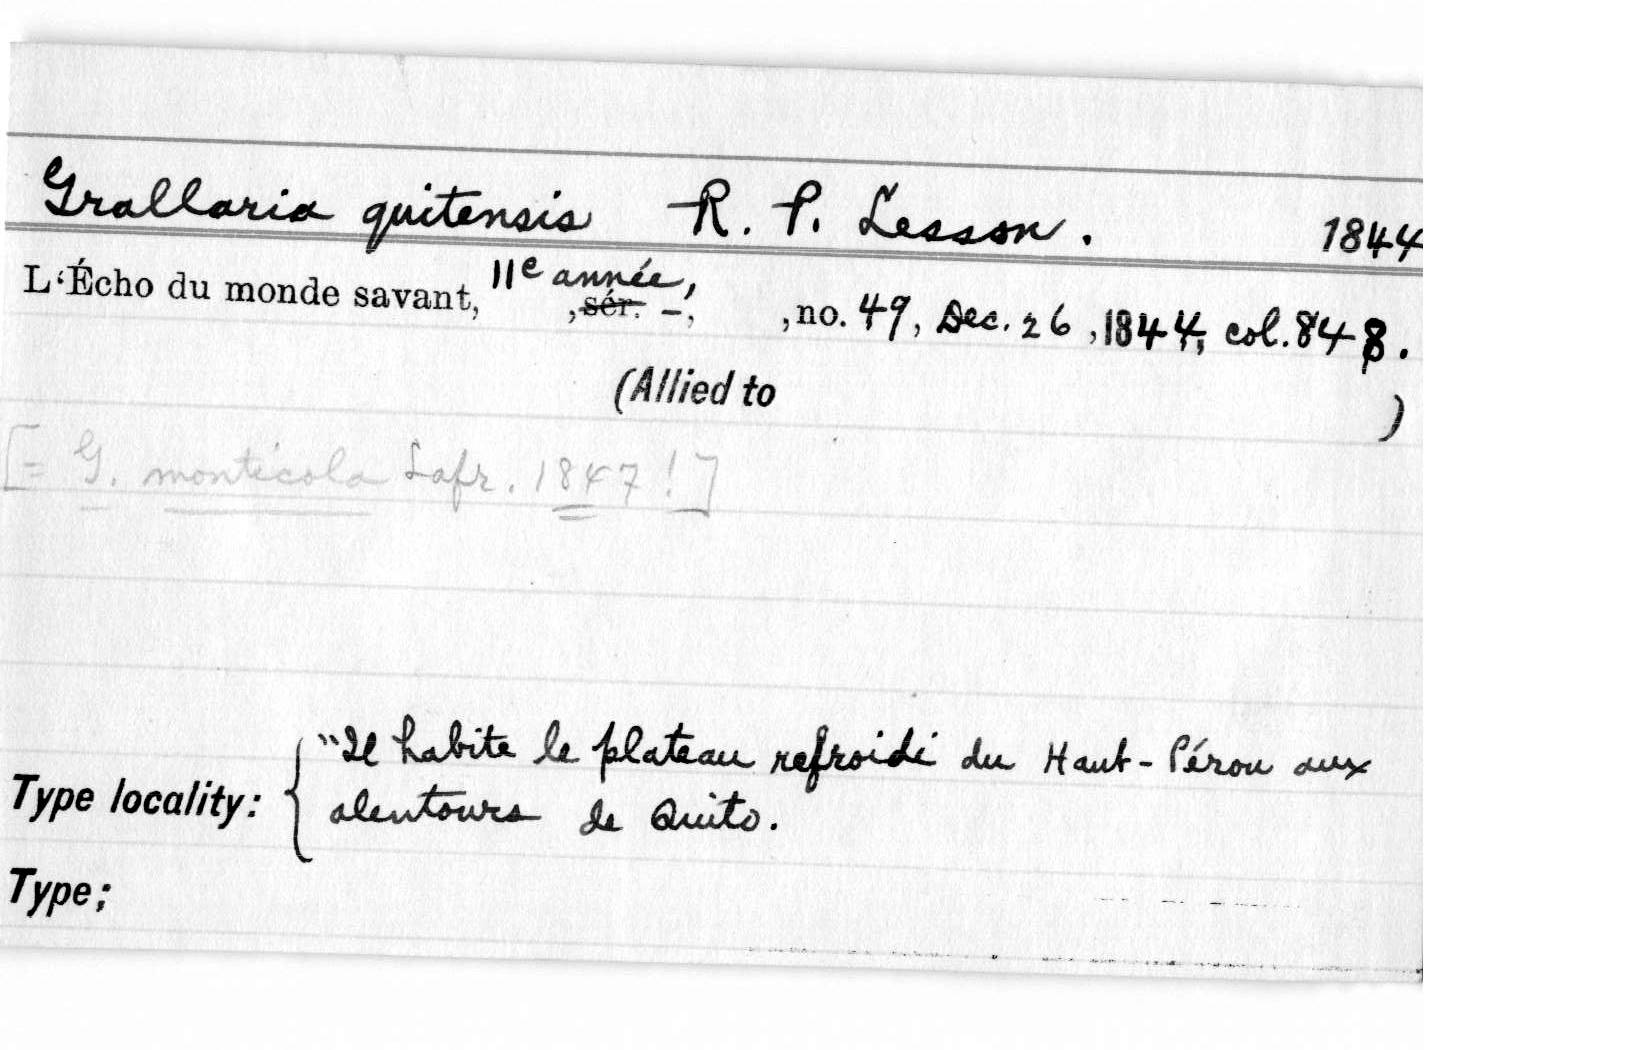 Grallaria quitensis R. P. Lesson. 1844
L'Écho du monde savant, 11e année, ,sér. –, ,no. 49, Dec. 26 ,1844, col. 848.
(Allied to )
[= G. monticola Lafr. 1847!]
"Il habite le plateau refroidi du Haut-Pérou aux
Type locality: { alentours de Quito.
Type;